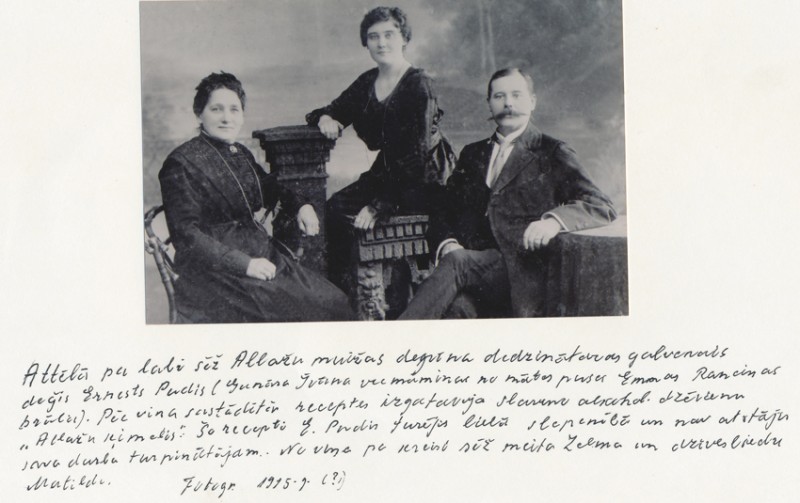 Attēlā pa labi sēž Allažu muižas degvīna dedzinātavas galvenais
deģis Ernests Perdis (Gunāra Īvāna vecmāmiņas no mātes puses Emmas Ranciņas
brālis). Pēc viņa sastādītās receptes izgatavoja slaveno alkohol. dzērienu
„Allažu ķimelis". Šo recepti E. Perdis turējis lielā slepenībā un nav atstājis
sava darba turpinātājam. No viņa pa kreisi sēž meita Zelma un dzīvesbiedre
Matilde. Fotogr. 1915. g. (?)